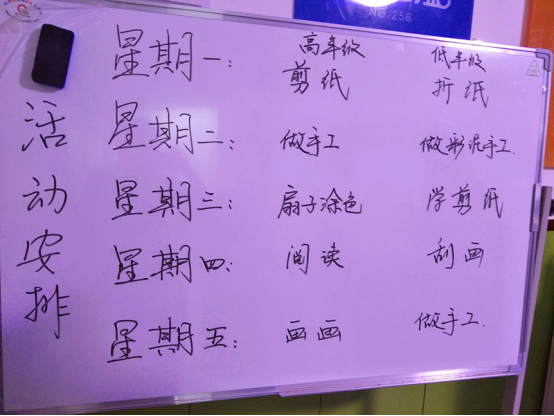 No.256
高年级 低年级
星期一: 剪纸 折纸
星期二: 做手工 做彩泥手工.
星期三: 扇子涂色 学剪纸
星期四: 阅读 刮画
星期五: 画画 做手工.
活动安排